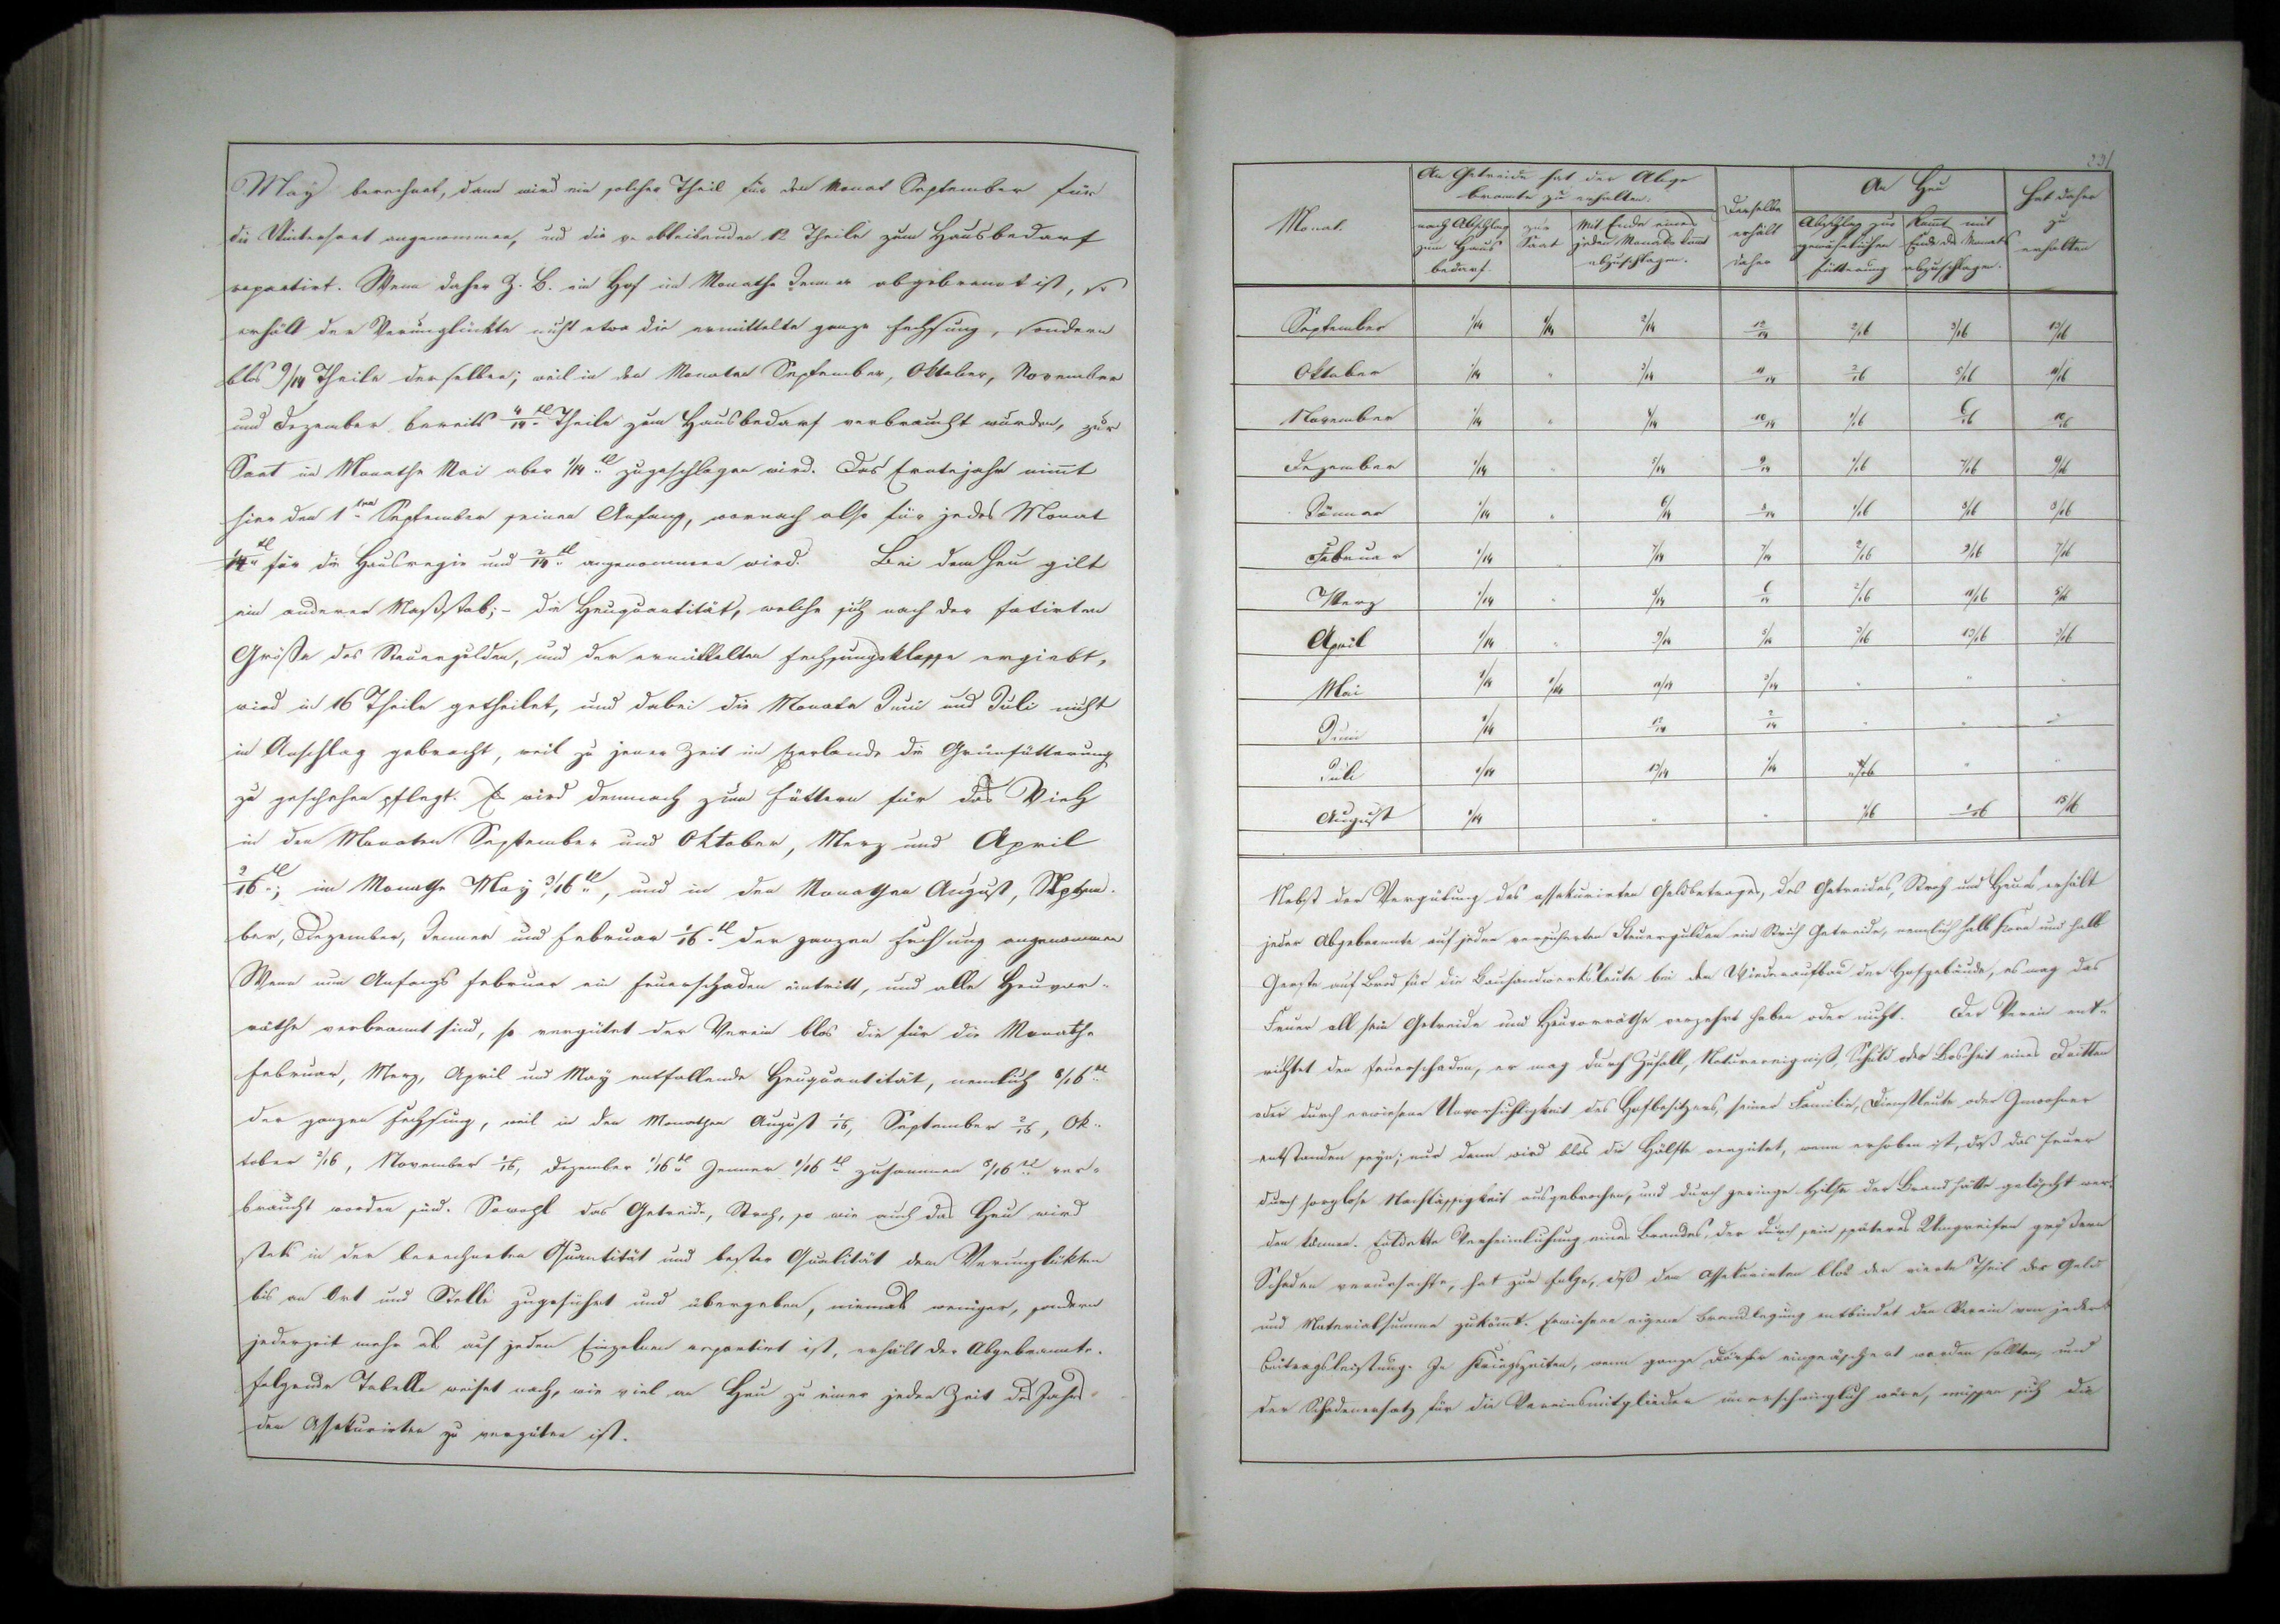 May berechnet, dann wird ein solcher Theil für den Monat September für
die Wintersaat angenommen, und die verbleibenden 12 Theile zum Hausbedarf
repartirt. Wenn daher Z. B. ein Hof im Monathe Jenner abgebrannt ist, so
erhält der Verunglückte nicht etwa die ermittelte ganze Fechsung, sondern
blos 9/14 Theile derselben; weil in den Monaten September, Oktober, November
und Dezember bereits 4/14tl Theile zum Hausbedarf verbraucht wurden, zur
Saat im Monathe Mai aber 1/14tl zugeschlagen wird. Das Erntejahr nimmt
hier den 1ten September seinen Anfang, wornach also für jedes Monat
1/14tl für die Hausregie und 2/14tl angenommen wird. Bei dem Heu gilt
ein anderer Maßstab; – die Heuquantität, welche sich nach der fatirten
Größe des Steuergulden, und der ermittelten Fechsungsklasse ergiebt,
wird in 16 Theile getheilet, und dabei die Monate Juni und Juli nicht
in Anschlag gebracht, weil zu jener Zeit im Egerlande die Grünfütterung
zu geschehen pflegt. Es wird demnach zum Füttern für das Vieh
in den Monaten September und Oktober, Merz und April
2/16tl; im Monathe May 3/16tl, und in den Monathen August, Septem-
ber, Dezember, Jenner und Februar 1/16tl der ganzen Fechsung angenommen
Wenn nun Anfangs Februar ein Feuerschaden eintritt, und alle Heuvor-
räthe verbrannt sind, so vergütet der Verein blos die für die Monathe
Februar, Merz, April und May entfallende Heuquantität, nemlich 8/16tl
der ganzen Fechsung, weil in den Monathen August 1/16, September 2/16, Ok-
tober 2/16, November 1/16, Dezember 1/16tl Jenner 1/16tl zusammen 8/16tl ver-
braucht worden sind. Sowohl das Getreide, Stroh, so wie auch das Heu wird
stets in der berechneten Quantität und bester Qualität dem Verunglükten
bis an Ort und Stelle zugeführt und übergeben, niemals weniger, sondern
jederzeit mehr als auf jeden Einzelnen repartirt ist, erhält der Abgebrannte.
Folgende Tabelle weiset nach, wie viel an Heu zu einer jeden Zeit des Jahrs
den Assekurirten zu vergüten ist.
231
Monat. An Getreide hat der Abge- Derselbe An Heu Hat daher
brannte zu erhalten. erhält daher zu erhalten
nach Abschlag zum Hausbedarf. zur Saat Mit Ende eines jeden Monats kommt abzuschlagen. Abschlag zur gewöhnlichen Fütterung Kommt mit Ende des Monats abzuschlagen.
September 1/14 1/14 2/14 12/14 2/16 3/16 13/16
Oktober 1/14 " 3/14 11/14 2/16 5/16 11/16
November 1/14 " 4/14 10/14 1/16 6/16 10/16
Dezember 1/14 " 5/14 9/14 1/16 7/16 9/16
Jänner 1/14 " 6/14 8/14 1/16 8/16 8/16
Februar 1/14 7/14 7/14 9/16 7/16
Merz 1/14 " 8/14 6/14 2/16 11/16 5/16
April 1/14 " 9/14 5/14 13/16 3/16
Mai 1/14 1/14 3/14 " " "
Juni 1/14 12/14 2/14 " " "
Juli 1/14 13/14 1/14 " "
August 1/14 " " 1/16 1/16 15/16
Nebst der Vergütung des assekurirten Geldbetrages, des Getreides, Stroh und Heues erhält
jeder Abgebrannte auf jeden versicherten Steuergulden ein Strich Getreide, nemlich halb Korn und halb
Gerste auf Brod für die Bauhandwerksleute bei dem Wiederaufbau der Hofgebäude, es mag das
Feuer all sein Getreide und Heuvorräthe verzehrt haben oder nicht. Der Verein ent-
richtet den Feuerschaden, er mag durch Zufall, Naturereigniß, Schuld oder Bosheit eines Dritten
oder durch erwiesene Unvorsichtigkeit des Hofbesitzers, seiner Familie, Dienstleute oder Inwohner
entstanden seyn; nur dann wird blos die Hälfte vergütet, wenn erhoben ist, daß das Feuer
durch sorglose Nachlässigkeit ausgebrochen, und durch geringe Hilfe der Brand hätte gelöscht wer-
den können. Entdekte Verheimlichung eines Brandes, der durch sein späteres Umgreifen größern
Schaden verursachte, hat zur Folge, daß dem Assekurirten blos der vierte Theil der Geld
und Materialsumme zukömmt. Erwiesene eigene Brandlegung entbindet den Verein von jeder
Beitragsleistung. In Kriegszeiten, wenn ganze Dörfer eingeäschert werden sollten, und
der Schadenersatz für die Vereinsmitglieder unerschwinglich wäre, müssen sich die